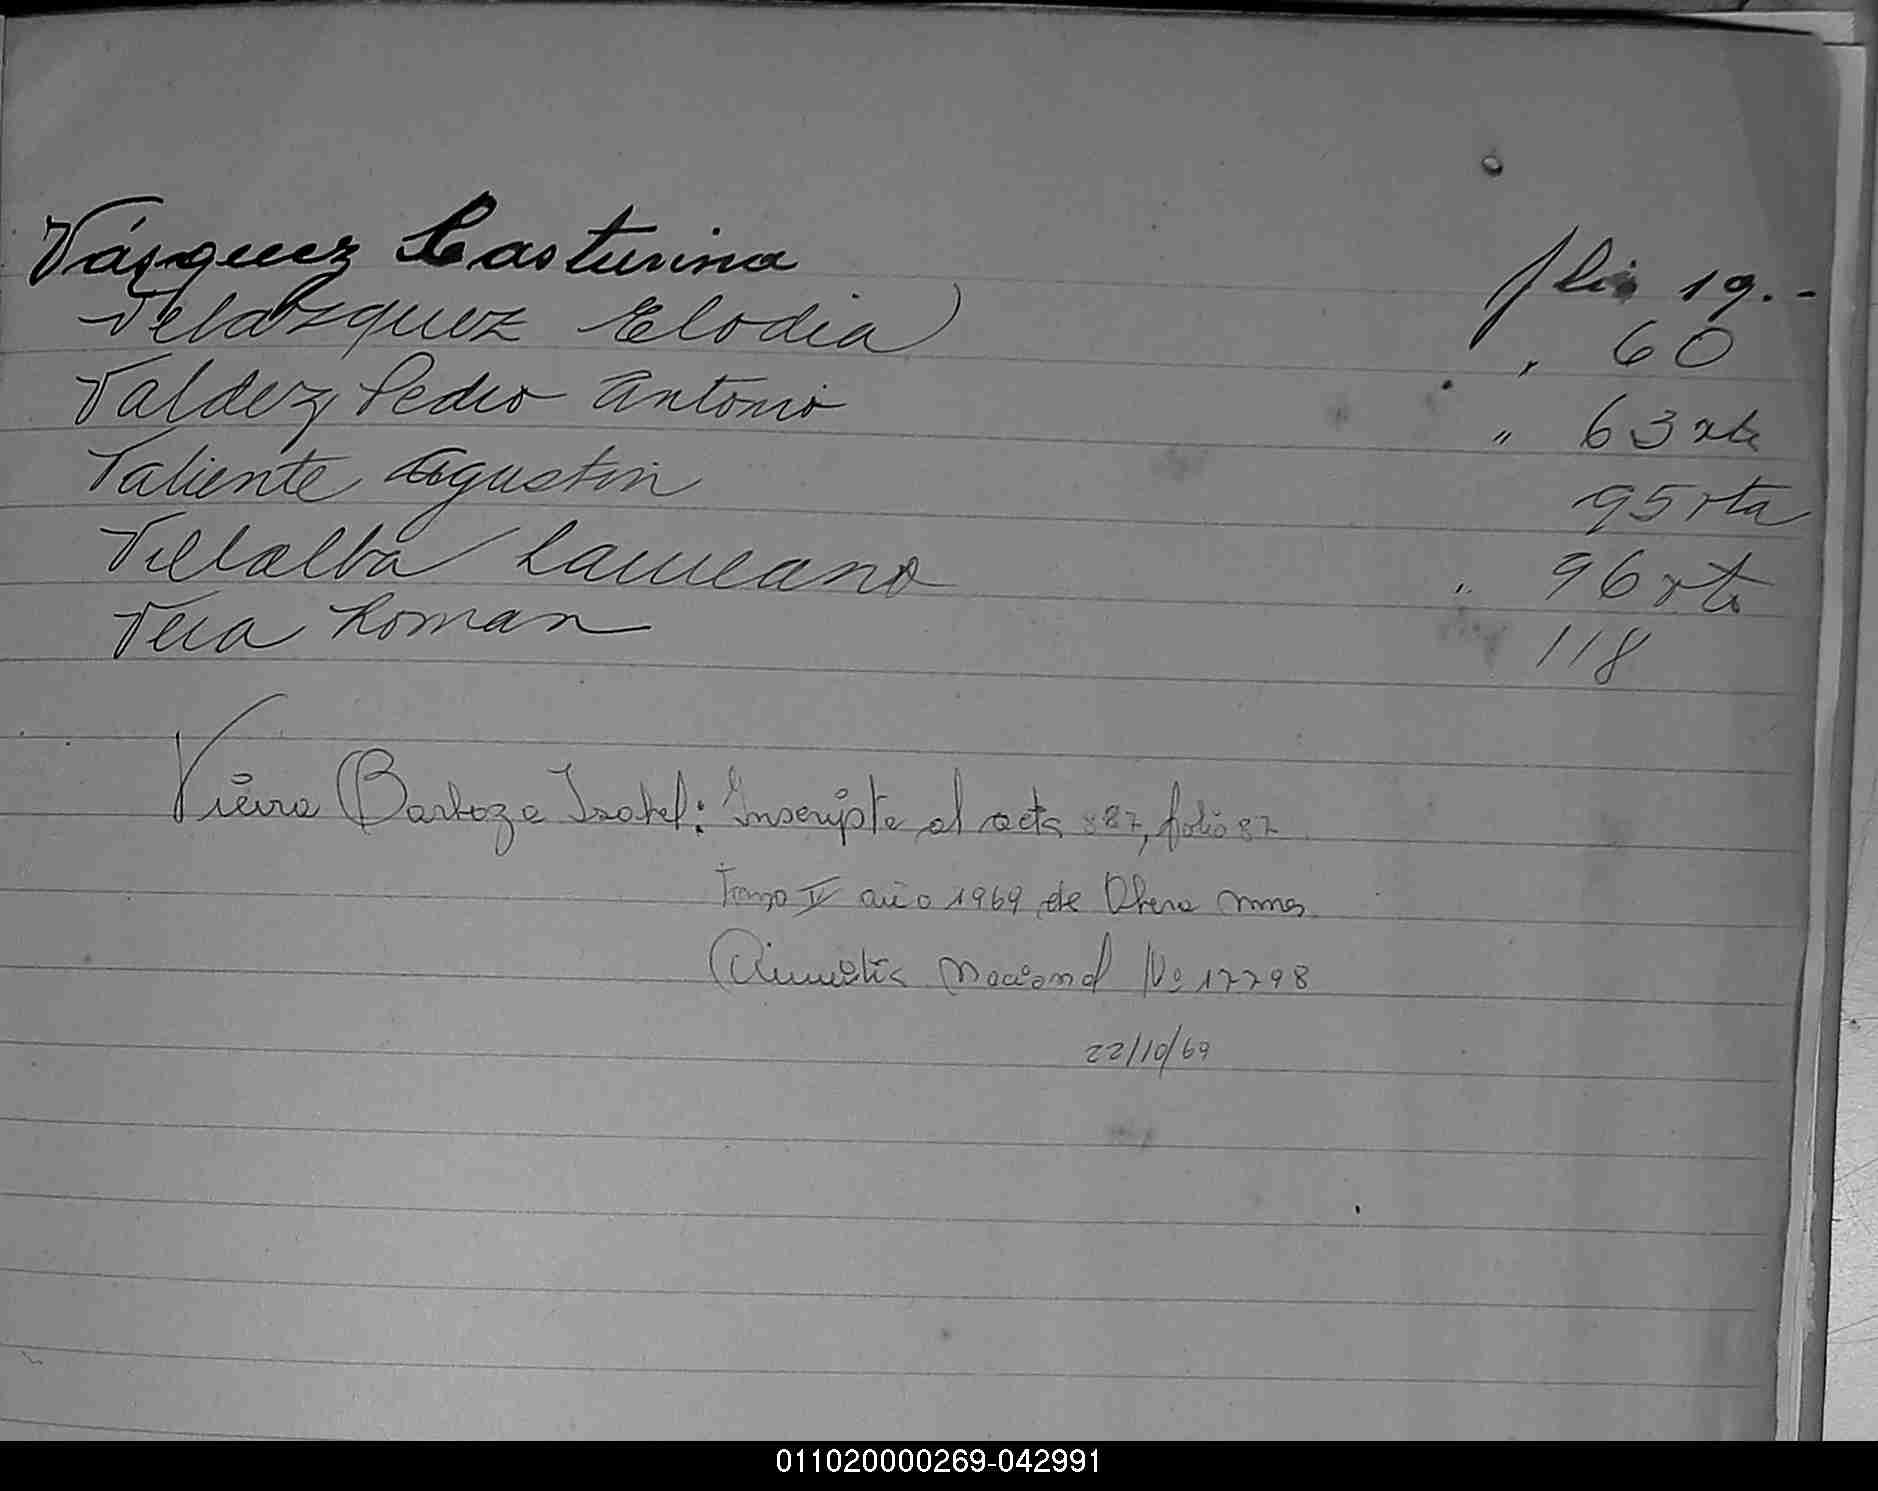 Vásquez Casturina folio 19.-
Velazquez Elodia " 60
Valdez, Pedro Antonio " 63 vta
Valiente Agustin 95 vta
Villalba Laureano " 96 vta
Vera Roman 118
Vieira Barboza Isabel: Inscripta al acta 887, folio 87
Tomo IV año 1969 de Obera Mnes
Amnistia Nacional Nº 17798
22/10/69
011020000269-042991